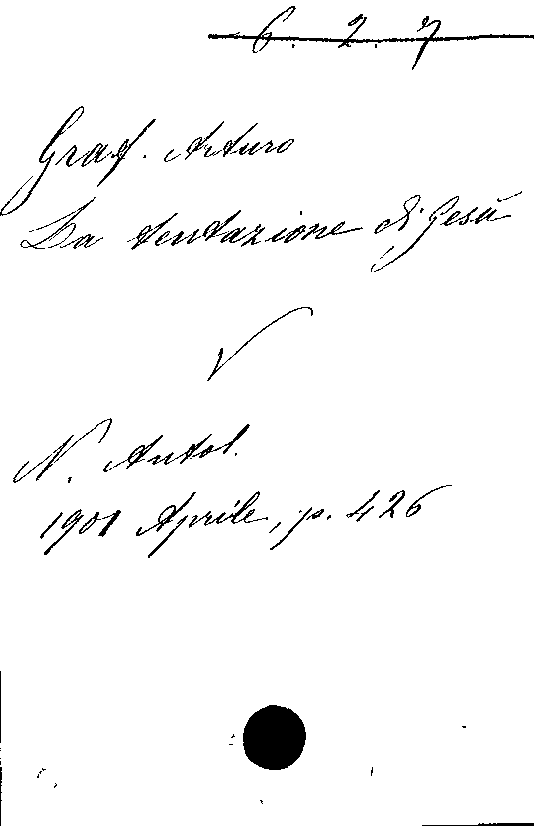 6. 2. 7
Graf. Arturo
La tentazione di Gesù
N. Antol.
1901 Aprile, p. 426